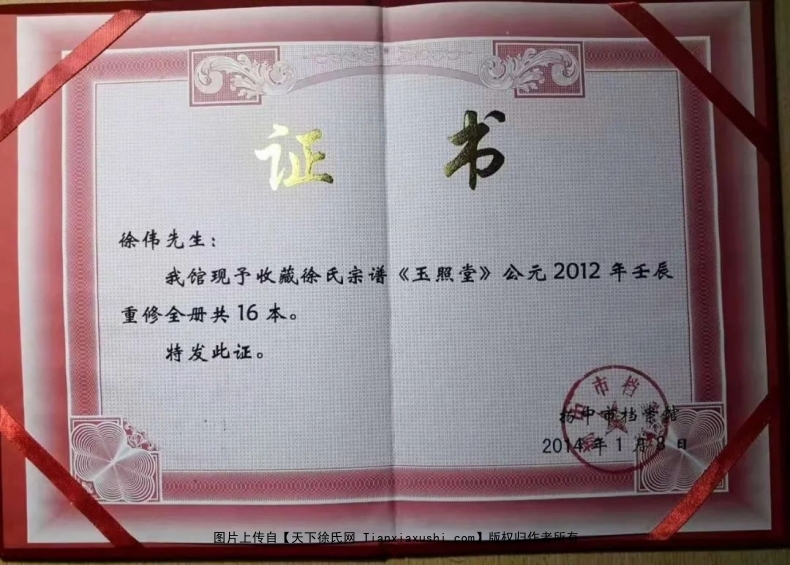 证 书
徐伟先生：
我馆现予收藏徐氏宗谱《玉照堂》公元2012年壬辰
重修全册共16本。
特发此证。
扬中市档案馆
2014年1月8日
图片上传自【天下徐氏网 Tianxiaxushi.com】版权归作者所有